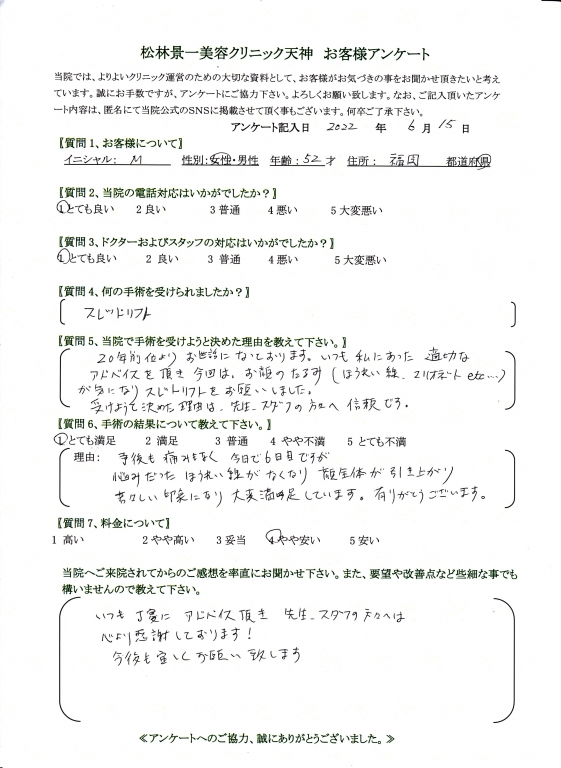 松林景一美容クリニック天神 お客様アンケート
当院では、よりよいクリニック運営のための大切な資料として、お客様がお気づきの事をお聞かせ頂きたいと考え
ています。誠にお手数ですが、アンケートにご協力下さい。よろしくお願い致します。なお、ご記入頂いたアンケ
ート内容は、匿名にて当院公式のSNSに掲載させて頂く事もございます。何卒ご了承下さい。
アンケート記入日 2022 年 6 月 15 日
〖質問 1、お客様について〗
イニシャル: M 性別:女性・男性 年齢:52 才 住所: 福岡 都道府県
〖質問 2、当院の電話対応はいかがでしたか?〗
1とても良い 2 良い 3 普通 4 悪い 5 大変悪い
〖質問 3、ドクターおよびスタッフの対応はいかがでしたか?〗
1とても良い 2 良い 3 普通 4 悪い 5 大変悪い
〖質問 4、何の手術を受けられましたか?〗
スレッドリフト
〖質問 5、当院で手術を受けようと決めた理由を教えて下さい。〗
20年前位より お世話になっております。いつも 私にあった 適切な
アドバイスを頂き 今回は、お顔のたるみ (ほうれい線、マリオネット etc...)
が気になりスレッドリフトをお願いしました。
受けようて決めた理由は、先生、スタッフの方々へ 信頼です。
〖質問 6、手術の結果について教えて下さい。〗
1とても満足 2 満足 3 普通 4 やや不満 5 とても不満
理由: 手術後も痛みもなく 今日で6日目ですが
悩みだった ほうれい線がなくなり 顔全体が引き上がり
若々しい印象になり 大変満足しています。有りがとうございます。
〖質問 7、料金について〗
1 高い 2 やや高い 3 妥当 4やや安い 5 安い
当院へご来院されてからのご感想を率直にお聞かせ下さい。また、要望や改善点など些細な事でも
構いませんので教えて下さい。
いつも 丁寧に アドバイス頂き 先生、スタッフの方々へは
心より感謝しております!
今後も宜しくお願い致します
≪アンケートへのご協力、誠にありがとうございました。≫